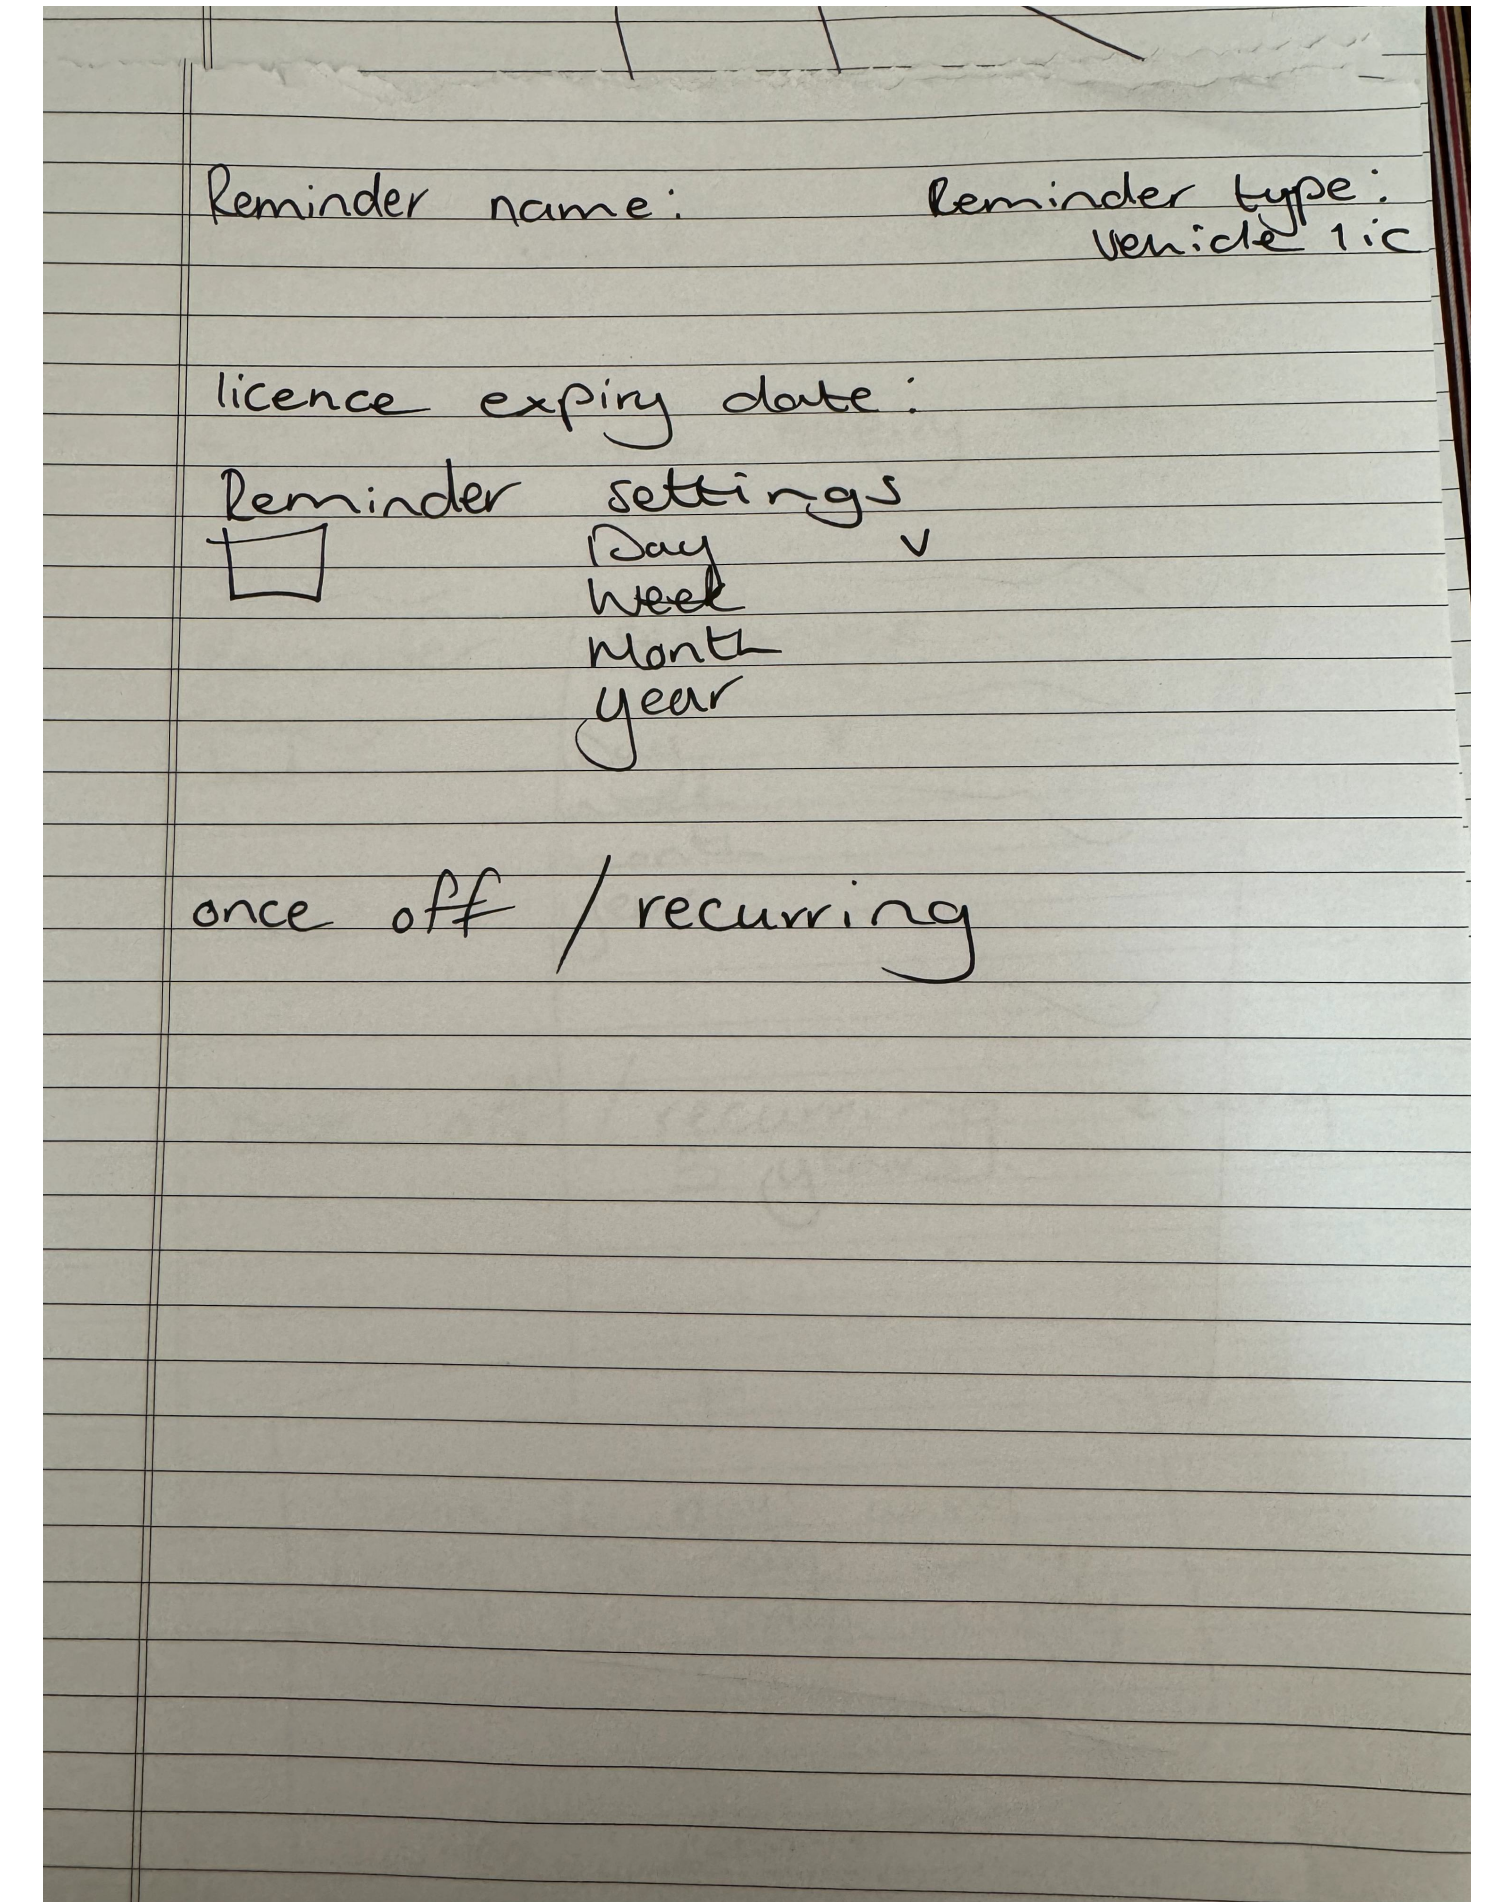 Reminder name: Reminder type:
vehicle lic
licence expiry date:
Reminder settings
Day v
Week
Month
year
once off / recurring